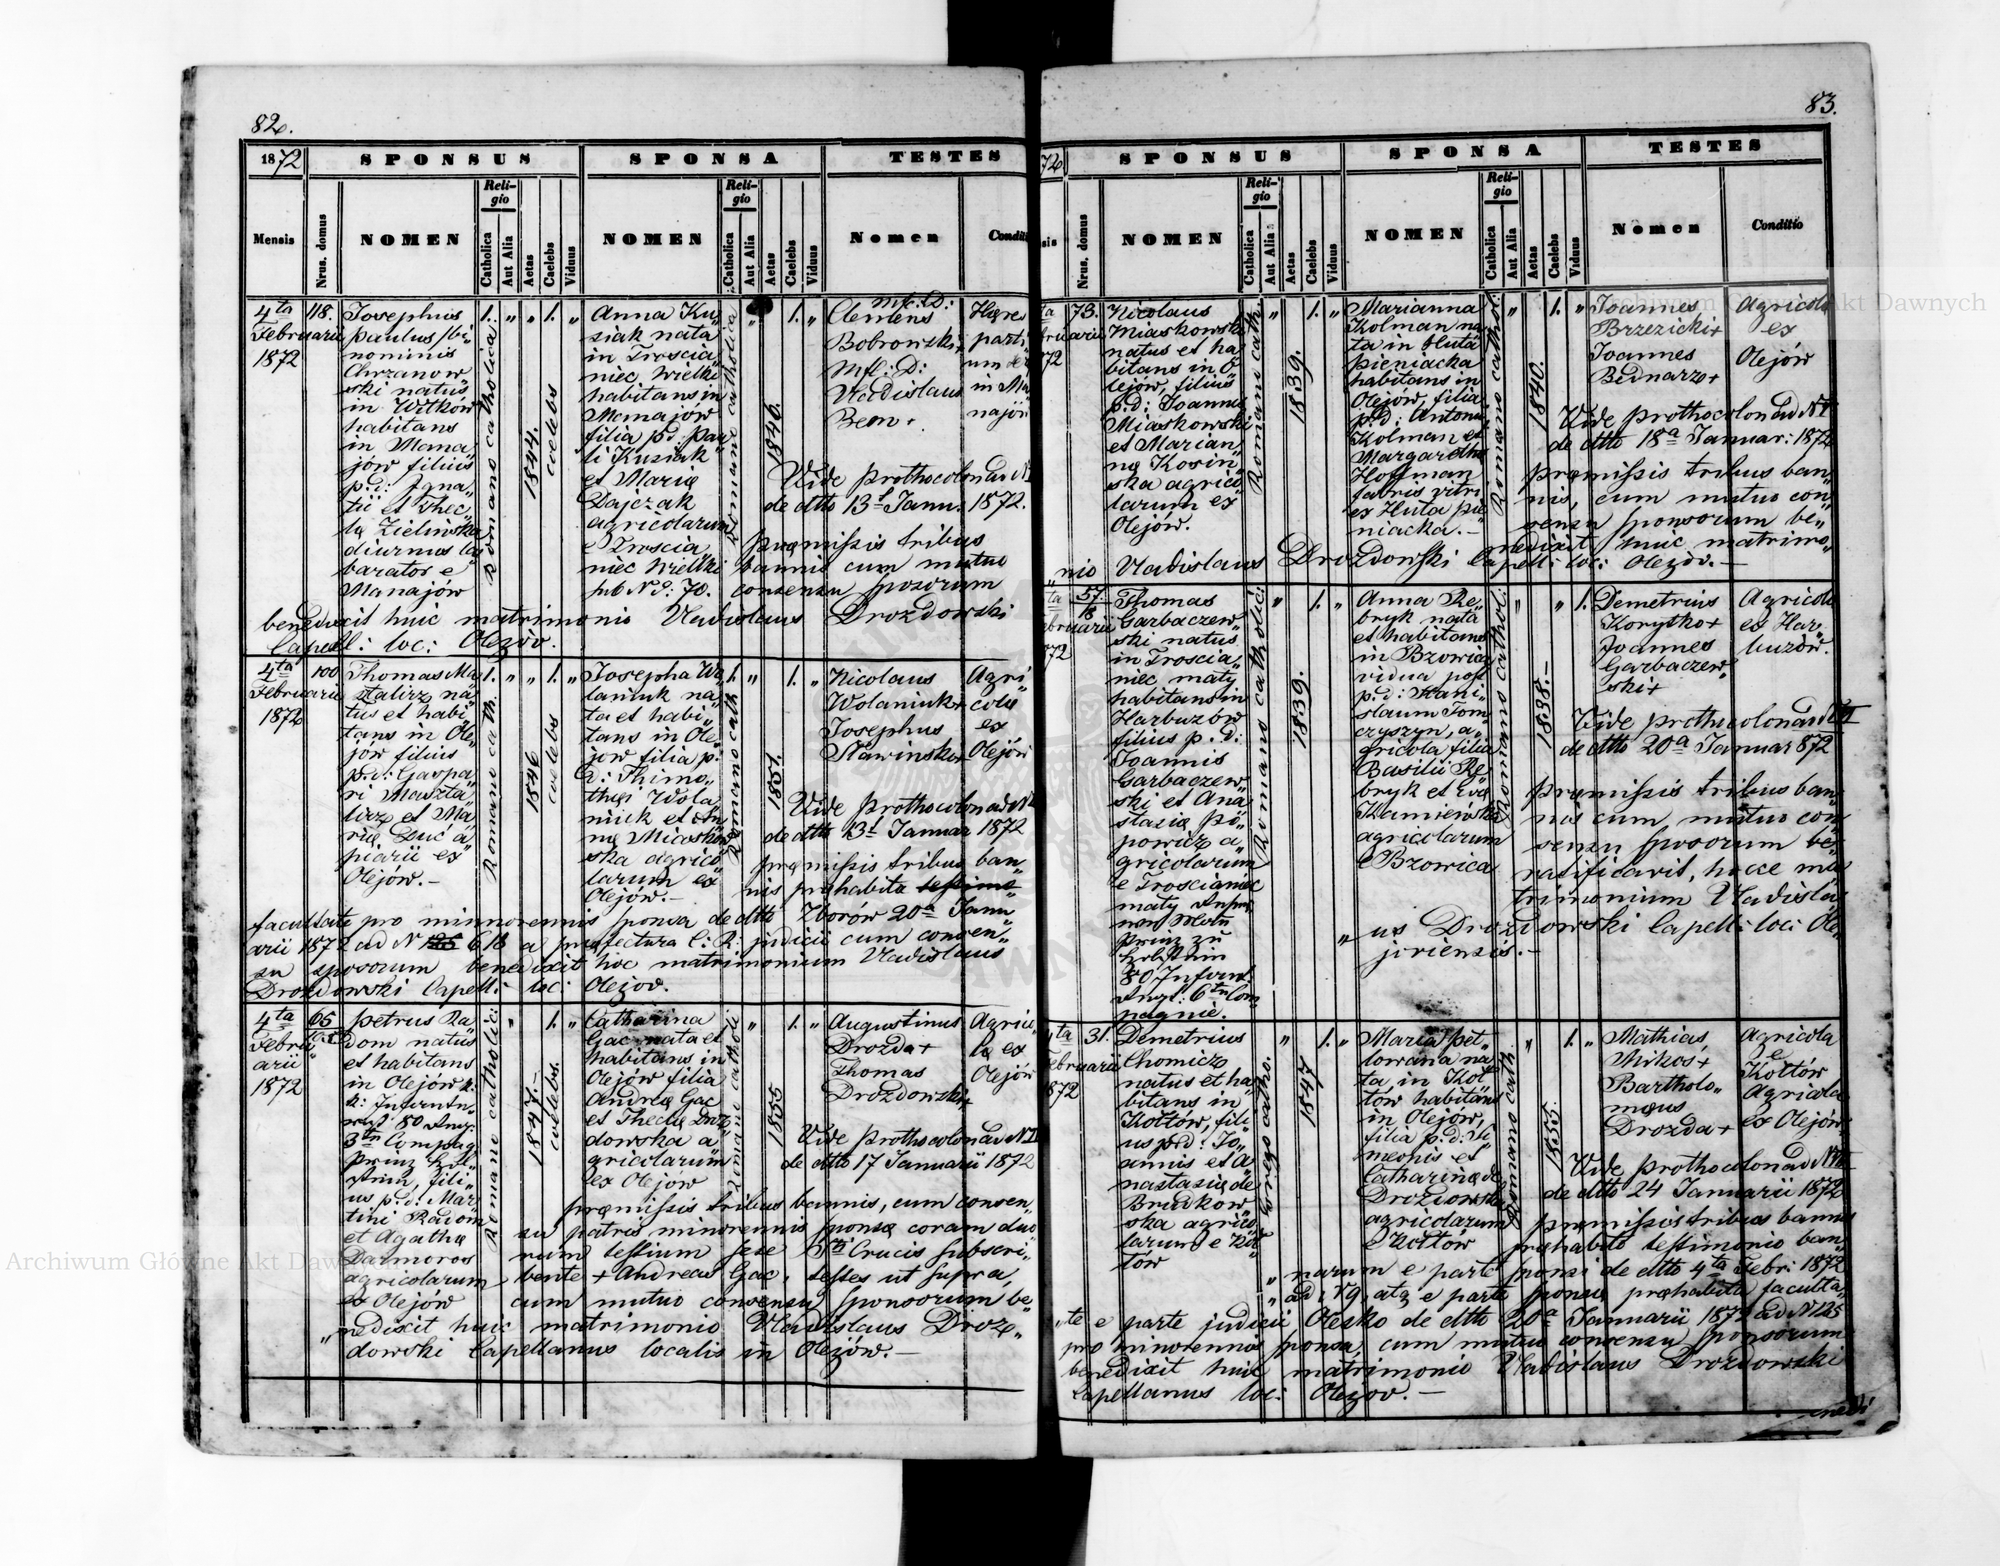 82.
1872
SPONSUS
SPONSA
TESTES
Mensis
Nrus. domus
NOMEN
Religio
Catholica
Aut Alia
Aetas
Caelebs
Viduus
NOMEN
Religio
Catholica
Aut Alia
Aetas
Caelebs
Viduus
Nomen
Conditi
4ta
Februarii
1872
118.
Josephus
Paulus bi„
nominis
Chrzanow
ski natus
in Witków
habitans
in Mana
jów filius
p.d: Igna„
tii et Thec„
lę Zielinska
diurnus la„
borator e
Manajów
1.
Romano catholica
„
„
1844.
1.
coelebs
„
Anna Ku„
ziak nata
in Troscia„
niec Wielki
habitans in
Manajów
filia p.d: Pau
li Kuziak
et Marię
Dajczak
agricolarum
e Troscia„
niec Wielki
sub No: 70.
Romano catholica
„
1846.
1.
„
Mfc: D:
Clemens
Bobrowski+
Mfc: D:
Vladislaus
Bem+.
Hęres
parti
um de
in Ma
najów
Vide prothocolon ad N I
de dtto 13t Janu. 1872.
pręmissis tribus
bannis cum mutuo
consensu sposorum
benedixit huic matrimonio Vladislaus Drozdowski
Capell: loc: Olejov.
4ta
Februarii
1872
100
Thomas Ma„
stalirz na„
tus et habi„
tans in Ole„
jów filius
p.d: Gaspa„
ri Maszta„
lirz et Ma„
rię Guć a„
piarii ex
Olejów.–
1.
Romano cath.
„
„
1846
1.
coelebs
„
Josepha Wo„
laniuk na„
ta et habi„
tans in Ole„
jow filia p.
d: Thimo„
thęi Wola
niuk et An„
nę Miaskow
ska agrico„
larum ex
Olejów.–
1.
Romano cath
„
1851.
1.
„
Nicolaus
Wolaniuk+
Josephus
Stawinski+
Agri„
colę
ex
Olejów
Vide prothocolon ad N
de dtto 13t Januar 1872
pręmissis tribus ban„
nis pręhabita testimo
facultate pro minnorennis sponsa de dtto Zborów 20a Janu„
arii 1872 ad N 618 a pręfectura C: R: judicii cum consen„
su sposorum benedixit hoc matrimonium Vladislaus
Drozdowski Capell: loc: Olejov.
4ta
Febru„
arii
1872
65
Petrus Ra„
dom natus
et habitans
in Olejów k.
k: Infantr.
3tn Compag.
filii„
us p.d: Mar„
tini Radom
et Agathę
Darmoros
agricolarum
ex Olejów
Romano catholic.
„
1847.–
1.
coelebs.
„
Catharina
Gac nata et
habitans in
Olejów filia
Andreę Gac
et Theclę Droz„
dowska a„
gricolarum
ex Olejow
Romano catholi.
„
1855
1.
„
Augustinus
Drozda+
Thomas
Drozdowski+
Agrico„
lę ex
Olejów
Vide prothocolon ad N II
de dtto 17 Januarii 1872
pręmissis tribus bannis, cum consen„
su patris minorennis sponsę coram duo„
rum testium sese Sti Crucis subscri„
bente + Andreas Gac, testes ut supra,
cum mutuo consensu sponsorum be„
„nedixit huic matrimonio Vladislaus Droz„
dowski Capellanus localis in Olejów.–
83.
72
SPONSUS
SPONSA
TESTES
sis
Nrus. domus
NOMEN
Religio
Catholica
Aut Alia
Aetas
Caelebs
Viduus
NOMEN
Religio
Catholica
Aut Alia
Aetas
Caelebs
Viduus
Nomen
Conditio
ta
bruarii
72
73.
Nicolaus
Miaskowski
natus et ha„
bitans in O„
lejów, filius
p.d: Joannis
Miaskowski
et Marian„
nę Kosin„
ska agrico„
larum ex
Olejów.
Romano cath.
„
1839.
1.
„
Marianna
Kolman na„
ta in Huta
pieniacka
habitans in
Olejów, filia
p.d: Antonii
Kolman et
Margarethę
Hoffman
fabris vitri
ex Huta pie„
niacka.–
Romano cathol:
„
1840.
1.
„
Joannes
Brzezicki+
Joannes
Bednarz+
Agricolę
ex
Olejów
Vide prothocolon ad N V
de dtto 18a Januar: 1872
pręmissis tribus ban„
nis, cum mutuo con„
sensu sponsorum be„
nedixit huic matrimo„
„nio Vladislaus Drozdowski Capell: loc: Olejov.–
ta
bruarii
72
57.
18
Thomas
Garbaczew„
ski natus
in Troscia„
niec mały
habitans in
Harbuzów
filius p.d:
Joannis
Garbaczew„
ski et Ana„
stasię Po„
powicz a„
gricolarum
e Troscianiec
mały
Prinz zu
Holstein
80 Infant.
Romano catholic:
„
1839.
1.
„
Anna Re„
bryk nata
et habitans
in Bzowica
vidua post
p.d: Stani„
slaum Tom„
czyszyn, a„
gricola filia
Basilii Re„
bryk et Evę
Kamieńska
agricolarum
e Bzowica
Romano cathol:
„
1838.–
„
1.
Demetrius
Korytko+
Joannes
Garbaczew„
ski+
Agricolę
ex Har„
buzów.
Vide prothocolon ad N
de dtto 20a Januar 872
pręmissis tribus ban„
nis cum mutuo con„
sensu sposorum be„
ratificavit, hocce ma„
trimonium Vladisla„
„us Drozdowski Capell: loc: Ole„
joviensis.–
4ta
ebruarii
1872
31.
Demetrius
Chomicz
natus et ha„
bitans in
Kołtów, fili„
us p.d: Jo„
annis et A„
nastasię de
Brudkow„
ska agrico„
larum e Koł„
tów
Gręco catho.
„
1847
1.
„
Maria Pet„
lowana na„
ta, in Koł„
tów habitans
in Olejów,
filia p.d: Si„
meonis et
Catharinę de
Drozdowska
agricolarum
e Kołtów
Romano cath.
„
1855.
1.
„
Mathias,
Mikos+
Bartholo„
męus
Drozda+
Agricola
e
Kołtów
Agricola
ex Olejów
Vide prothocolon ad N
de dtto 24 Januarii 1872
pręmissis tribus bannis
pręhabito testimonio ban„
„narum e parte sponsi de dtto 4ta Febr: 1872
„ad N 9, atq e parte sponsę pręhabita faculta„
„te e parte judicii Olesko de dtto 20a Januarii 1872 ad N 125
pro minorennis sponsa, cum mutuo consensu sponsorum
benedixit huic matrimonio Vladislaus Drozdowski
Capellanus loc: Olejov.–
Archiwum Główne Akt Dawnych
Archiwum Główne Akt Dawnych